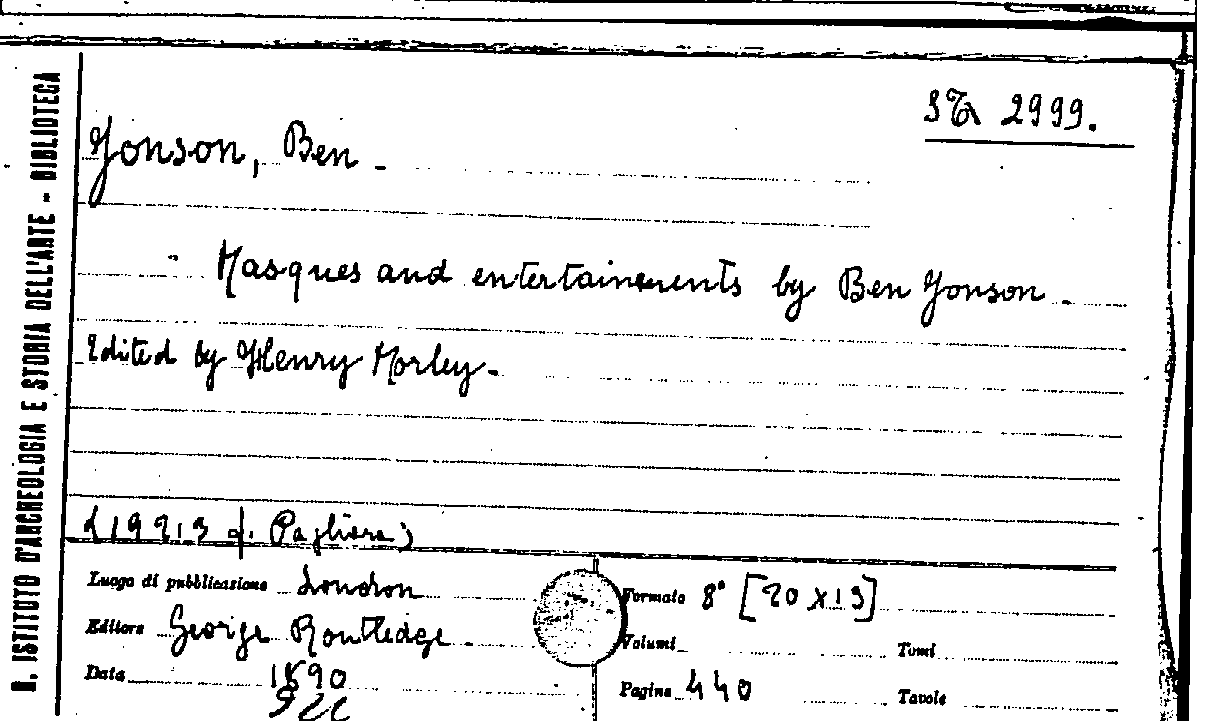 R. ISTITUTO D'ARCHEOLOGIA E STORIA DELL'ARTE - BIBLIOTECA
2999.
Jonson, Ben -
Masques and entertainements by Ben Jonson -
Edited by Henry Morley -
Luogo di pubblicazione London
Formato 8° [20 x 13]
Editore George Routledge
Volumi Tomi
Data 1890
Pagine 440 Tavole